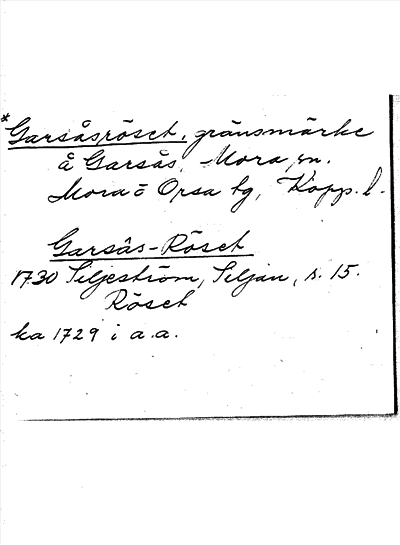 *Garsåsröset, gränsmärke
å Garsås, Mora sn.
Mora o Orsa tg, Kopp. l.
Garsås-Röset
1730 Siljeström, Siljan, s. 15.
Röset
ka 1729 i a.a.